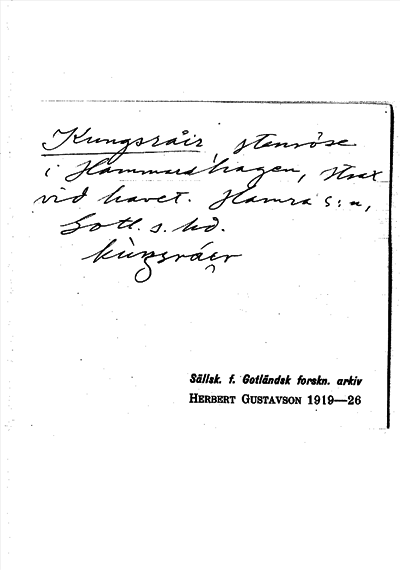 Kungsråir, stenröse
i Hammarshagen, strax
vid havet. Hamra s:n,
Gotl. s. hd.
kùŋsråi̯r
Sällsk. f. Gotländsk forskn. arkiv
HERBERT GUSTAVSON 1919—26